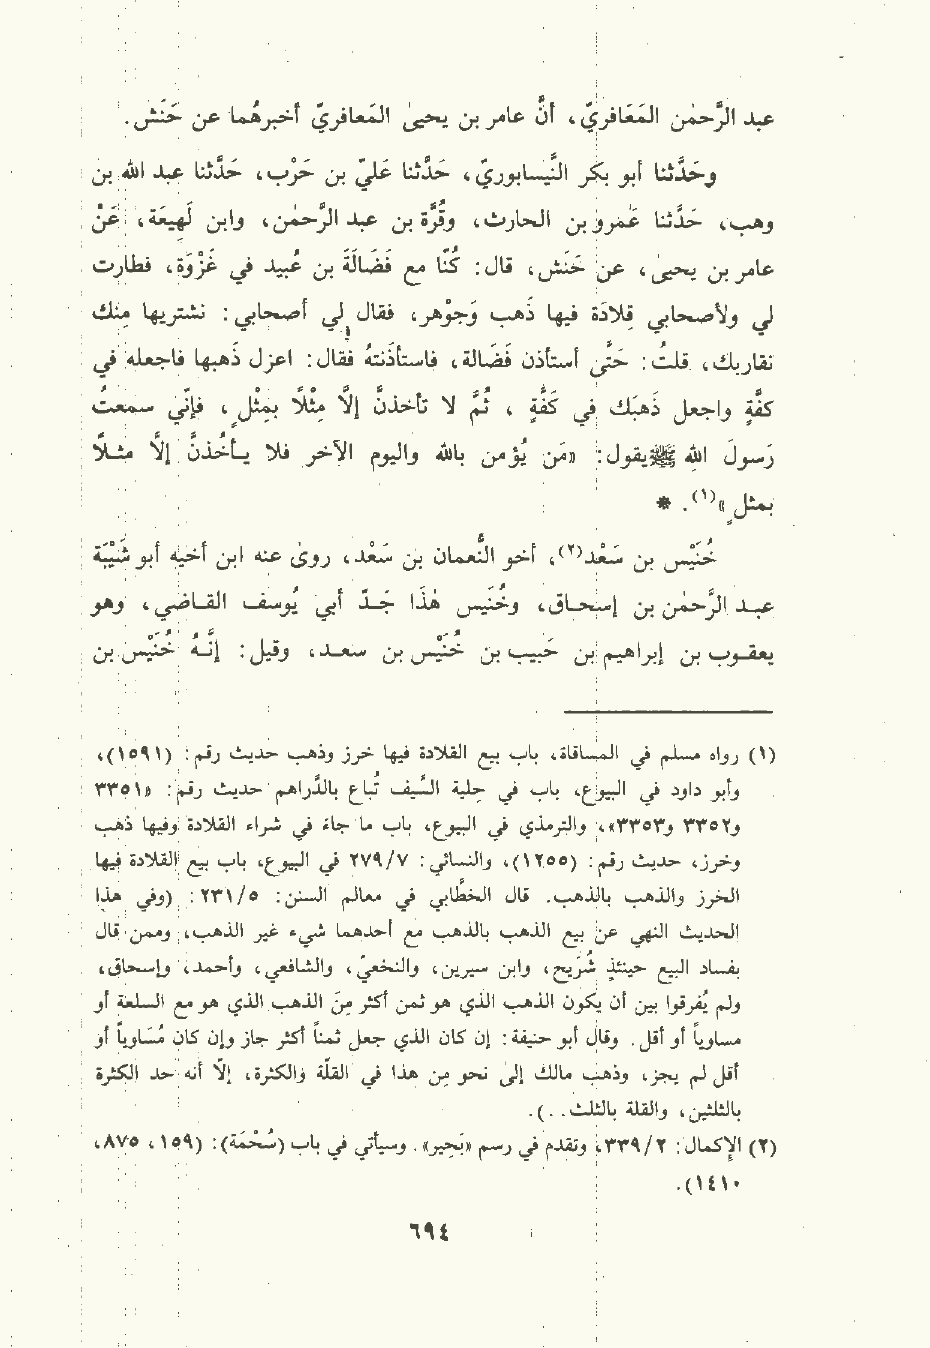 عبد الرَّحمٰن المَعَافريّ، أنَّ عامر بن يحيىٰ المَعافريّ أخبرهُما عن حَنَش.
وحَدَّثنا أبو بكر النَّيسابوريّ، حَدَّثنا عَليّ بن حَرْب، حَدَّثنا عبد الله بن
وهب، حَدَّثنا عَمرو بن الحارث، وقُرَّة بن عبد الرَّحمٰن، وابن لَهِيعَة، عَنْ
عامر بن يحيىٰ، عن حَنَش، قال: كُنّا مع فَضَالَة بن عُبيد في غَزْوَة، فطارت
لي ولأصحابي قِلادَة فيها ذَهب وَجوْهر، فقال لي أصحابي: نشتريها مِنك
نقاربك، قلتُ: حَتَّى أستأذن فَضالة، فاستأذَنتُه فقال: اعزل ذَهبها فاجعله في
كفَّةٍ واجعل ذَهبَك في كَفَّةٍ، ثُمَّ لا تأخذنَّ إلاَّ مِثْلاً بمِثْلٍ، فإنّي سمعتُ
رَسولَ الله ﷺ يقول: «مَن يُؤمن بالله واليوم الآخر فلا يـأخُذنَّ إلاَّ مثـلاً
بمثلٍ»(١). *
خُنَيْس بن سَعْد(٢)، أخو النُّعمان بن سَعْد، روىٰ عنه ابن أخيه أبو شَيْبَة
عبـد الرَّحمٰن بن إسحـاق، وخُنَيس هٰذا جَـدّ أبي يُوسف القـاضي، وهو
يعقـوب بن إبراهيم بن حَبيب بن خُنَيْس بن سعـد، وقيل: إنَّـهُ خُنَيْس بن
(١) رواه مسلم في المساقاة، باب بيع القلادة فيها خرز وذهب حديث رقم: (١٥٩١)،
وأبو داود في البيوع، باب في حِلية السَّيف تُباع بالدَّراهم حديث رقم: «٣٣٥١
و٣٣٥٢ و٣٣٥٣»، والترمذي في البيوع، باب ما جاءَ في شراء القلادة وفيها ذهب
وخرز، حديث رقم: (١٢٥٥)، والنسائي: ٢٧٩/٧ في البيوع، باب بيع القلادة فيها
الخرز والذهب بالذهب. قال الخطَّابي في معالم السنن: ٢٣١/٥: (وفي هذا
الحديث النهي عن بيع الذهب بالذهب مع أحدهما شيء غير الذهب، وممن قال
بفساد البيع حينئذٍ شُرَيح، وابن سيرين، والنخعيّ، والشافعي، وأحمد، وإسحاق،
ولم يُفرقوا بين أن يكون الذهب الذي هو ثمن أكثر مِنَ الذهب الذي هو مع السلعة أو
مساوياً أو أقل. وقال أبو حنيفة: إن كان الذي جعل ثمناً أكثر جاز وإن كان مُسَاوياً أو
أقل لم يجز، وذهب مالك إلى نحو من هذا في القلّة والكثرة، إلاّ أنه حد الكثرة
بالثلثين، والقلة بالثلث..).
(٢) الإِكمال: ٣٣٩/٢، وتقدم في رسم «بَحِير». وسيأتي في باب (سُحْمَة): (١٥٩، ٨٧٥،
١٤١٠).
٦٩٤